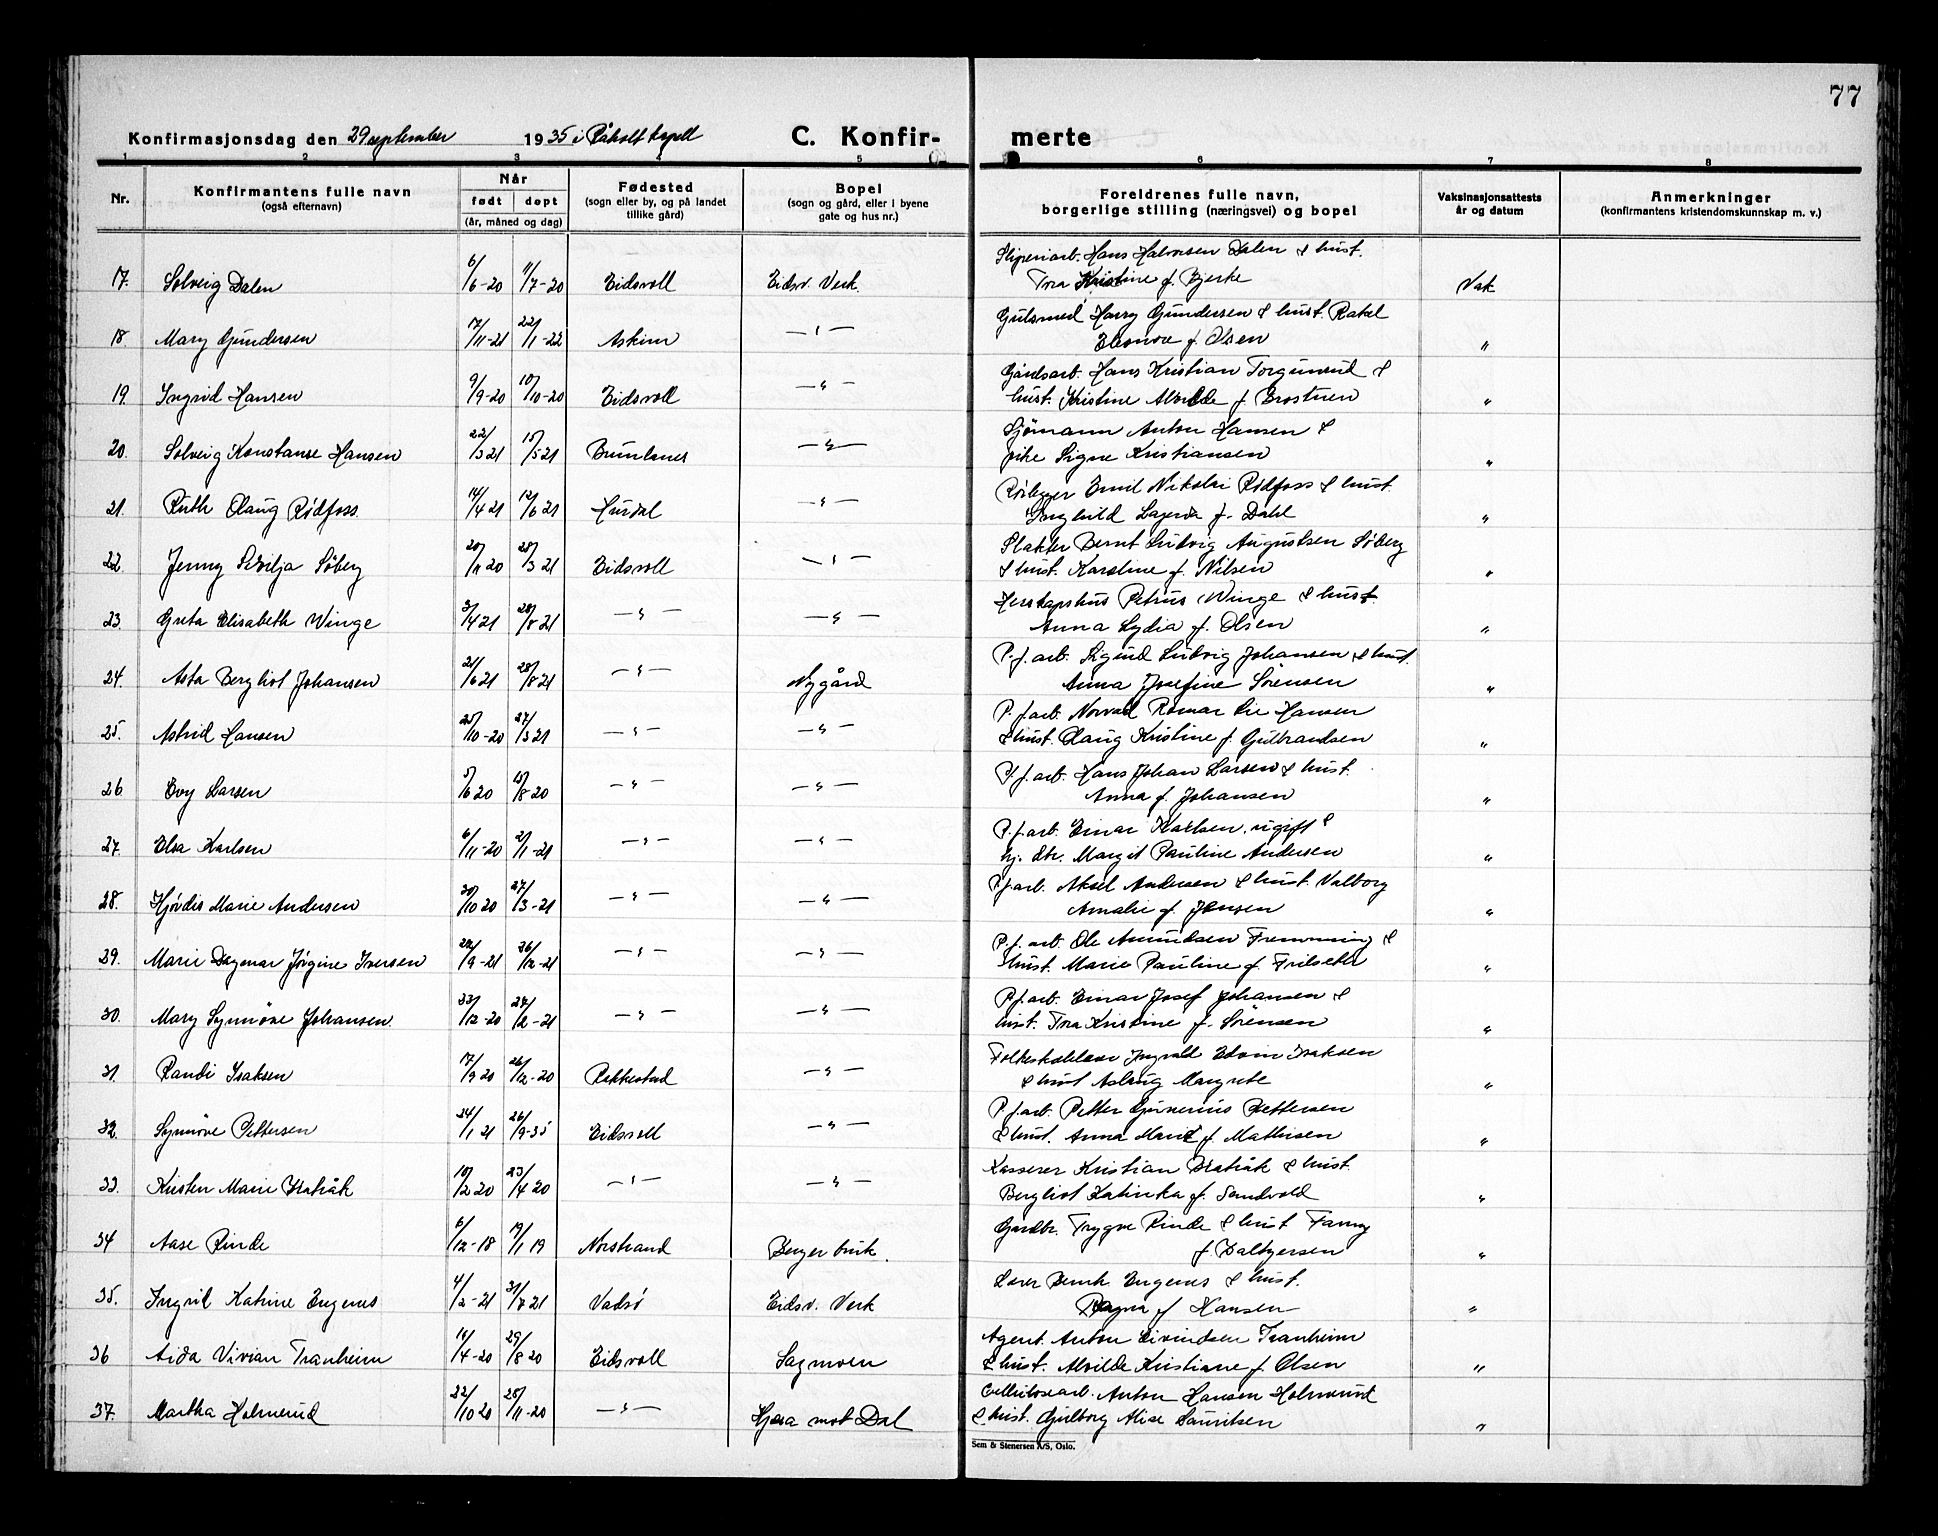 77
Konfirmasjonsdag den 29 september 1935 i Råholt kapell C. Konfirmerte
1 2 3 4 5 6 7 8
Nr. Konfirmantens fulle navn (også efternavn) Når født døpt (år, måned og dag) Fødested (sogn eller by, og på landet tillike gård) Bopel (sogn og gård, eller i byene gate og hus nr.) Foreldrenes fulle navn, borgerlige stilling (næringsvei) og bopel Vaksinasjonsattests år og datum Anmerkninger (konfirmantens kristendomskunnskap m. v.)
17. Solveig Dalen 6/6-20 11/7-20 Eidsvoll Eidsv. Verk. Sliperiarb. Hans Halvorsen Dalen & hust.
Tra Kristine f. Bjerke Vak
18. Mary Gundersen 17/11-21 22/1-22 Askim —"— Gulsmed Harry Gundersen & hust. Rakel
Eleonore f. Olsen "
19. Ingrid Hansen 9/9-20 10/10-20 Eidsvoll —"— Gårdsarb. Hans Kristian Torgunrud &
hust. Kristine f. Brostuen "
20. Solveig Konstanse Hansen 22/3 21 15/5 21 Brunlanes —"— Sjømann Anton Hansen &
pike Signe Kristiansen "
21. Ruth Olaug Rødfoss. 14/4 21 12/6 21 Hurdal —"— Rørlegger Emil Nikolai Rødfoss & hust.
Inghild Lagerda f. Dahl "
22. Jenny Søberg 20/11 20 28/3 21 Eidsvoll —"— Slakter Bernt Ludvig Augustsen Søberg
& hust. Karoline f. Nilsen "
23. Greta Elisabeth Winge 3/4 21 28/8 21 —"— —"— Petrus Winge & hust
Anna Lydia f. Olsen "
24. Asta Bergliot Johansen 21/6 21 28/8 21 —"— Nygård P. f. arb. Sigurd Ludvig Johansen & hust.
Anna Josefine Sørensen "
25. Astrid Hansen 25/10-20 27/3 21 —"— —"— P. f. arb. Hansen
& hust. Olaug Kristine f. Gulbrandsen "
26. Evy Larsen 5/6 20 15/8 20 —"— —"— P. f. arb. Hans Johan Larsen & hust.
Anna f. Johansen "
27. Elsa Karlsen 6/11-20 2/1-21 —"— —"— P. f. arb. Einar Karlsen, ugift &
hj. dtr. Margit Pauline Andersen "
28. Hjørdis Marie Andersen 30/10 20 27/3-21 —"— —"— P. f. arb. Aksel Andersen & hust. Valborg
Amalie f. Jensen "
29. Marie Dagmar Jørgine Iversen 22/9-21 26/12-21 —"— —"— P. f. arb. Ole Amundsen Fremming &
hust. Marie Pauline f. "
30. Mary Synnöve Johansen. 23/12-20 27/2-21 —"— —"— P. f. arb. Einar Josef Johansen &
hust. Tra Kristine f. Sørensen "
31. Randi Isaksen 17/9 20 26/12-20 Rakkestad —"— Folkeskolelærer Ingvald Edvin Isaksen
& hust Aslaug Margrete "
32. Synnöve Pettersen 24/1 21 26/9-35 Eidsvoll —"— P. f. arb. Petter Pettersen
& hust. Anna Marie f. Mathisen "
33. Kirsten Marie 10/2 20 23/4 20 —"— —"— Kasserer Kristian & hust.
Bergliot Katinka f. Sandvold "
34 Aase Rinde 6/12-18 19/1 19 Norstrand Berger bruk. Gardbr. Trygve Rinde & hust Fanny
f. "
35. Ingrid Katrine Engenes 4/2-21 31/7 21 Vadsö Eidsv. Verk Lærer Engenes & hust.
Ragna f Hansen "
36 Aida Vivian Tranheim 14/4-20 29/8 20 Eidsvoll Sagmoen Agent. Anton Eivindsen Tranheim
& hust. Alvilde Kristiane f. Olsen "
37. Martha Holmerud 22/10 20 28/11-20 —"— mot Dal Cellulosearb. Anton Hansen Holmerud
& hust. Gulborg Alise Lauritsen "
Sem & Stenersen A/S, Oslo.